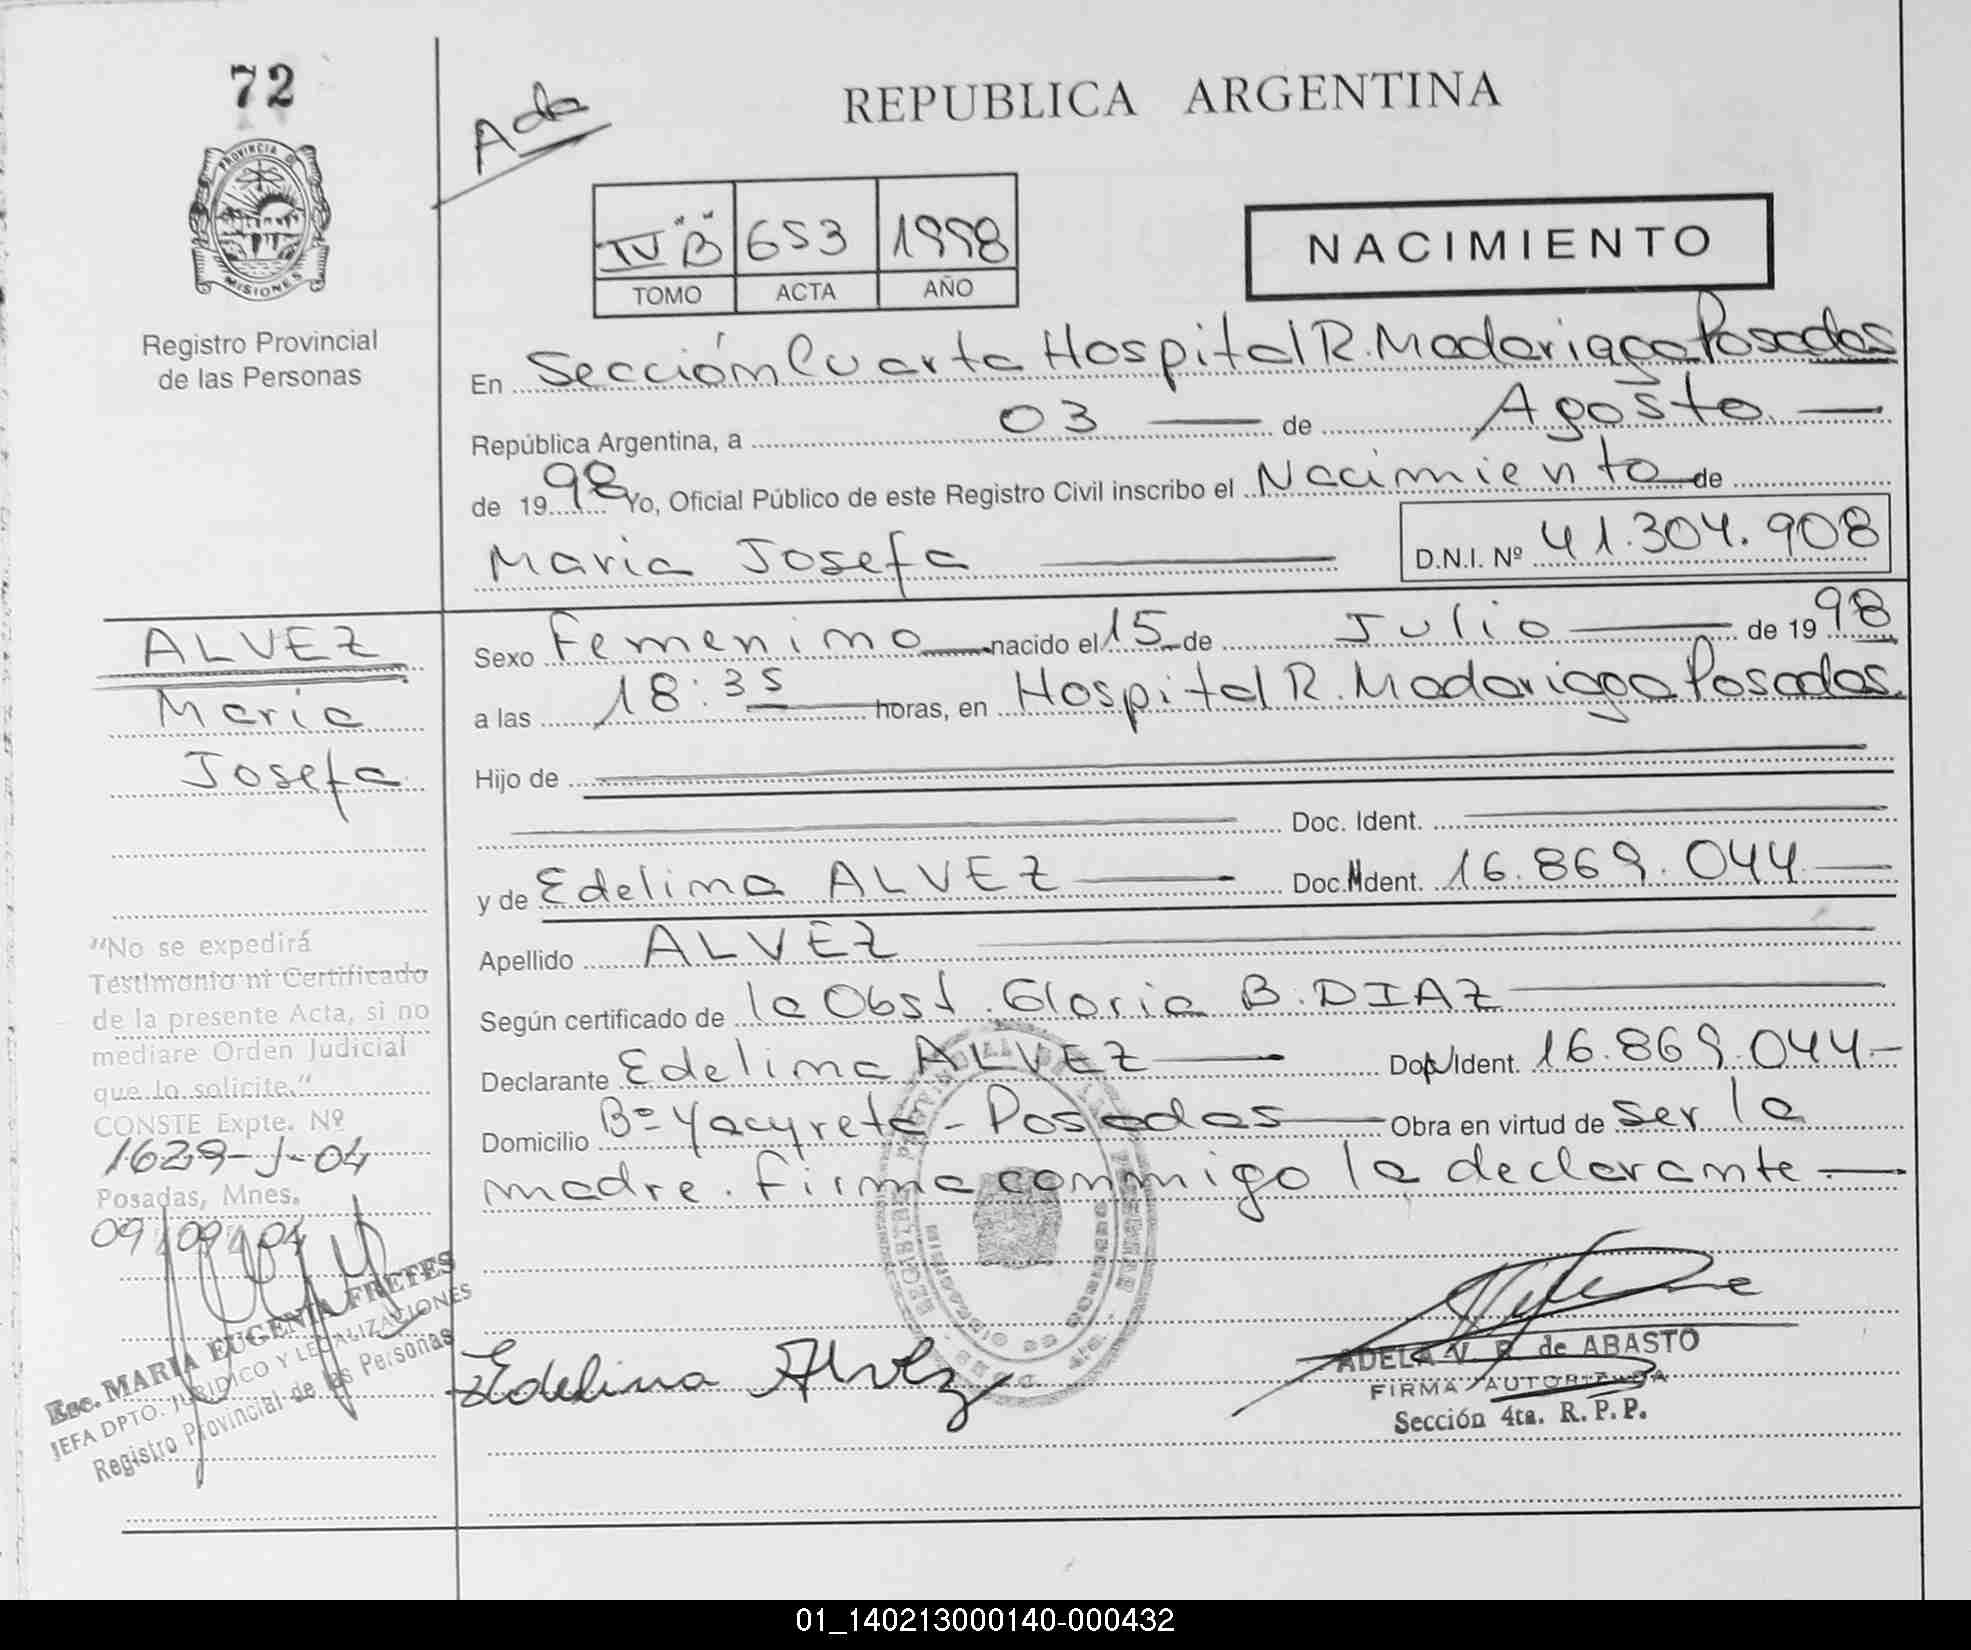 72
PROVINCIA DE
MISIONES
Registro Provincial
de las Personas
Ada
REPUBLICA ARGENTINA
IV "B" 653 1998
TOMO ACTA AÑO
NACIMIENTO
En Sección Cuarta Hospital R. Madariaga Posadas
República Argentina, a 03 de Agosto
de 1998 Yo, Oficial Público de este Registro Civil inscribo el Nacimiento de
Maria Josefa D.N.I. Nº 41.304.908
ALVEZ
Maria
Josefa
Sexo Femenino nacido el 15 de Julio de 1998
a las 18:35 horas, en Hospital R. Madariaga Posadas.
Hijo de
Doc. Ident.
y de Edelina ALVEZ Doc. Ident. 16.869.044
Apellido ALVEZ
Según certificado de la Obst. Gloria B. DIAZ
Declarante Edelina ALVEZ Doc. Ident. 16.869.044
Domicilio Bº Yacyreta - Posadas Obra en virtud de ser la
madre. Firma conmigo la declarante.
"No se expedirá
Testimonio ni Certificado
de la presente Acta, si no
mediare Orden Judicial
que lo solicite."
CONSTE Expte. Nº
1629-J-04
Posadas, Mnes.
09/09/04
Esc. MARIA EUGENIA FRETES
JEFA DPTO. JURIDICO Y LEGALIZACIONES
Registro Provincial de las Personas
Edelina Alvez
ADELA V. de ABASTO
FIRMA AUTORIZADA
Sección 4ta. R.P.P.
01_140213000140-000432